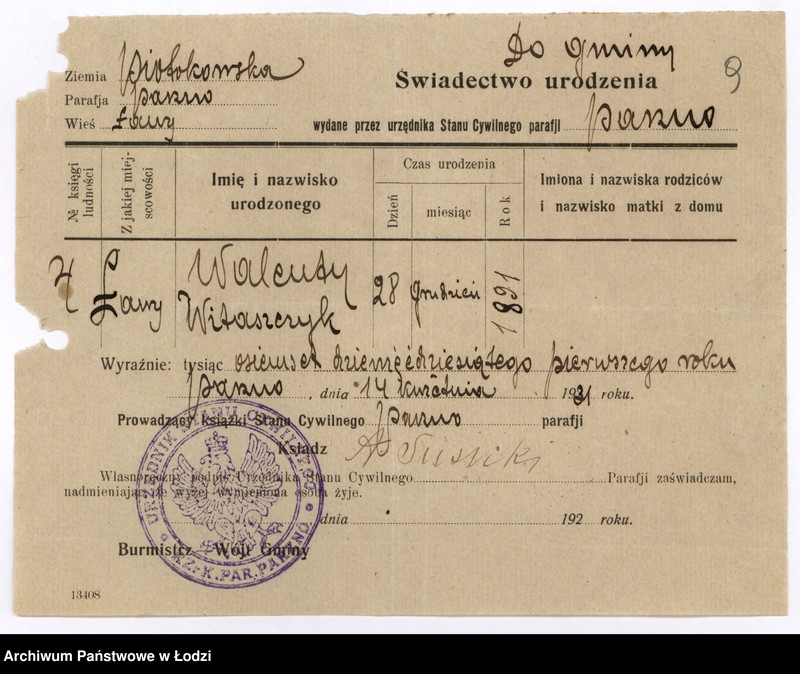 Do gminy
9
Ziemia Piotrkowska
Świadectwo urodzenia
Parafja Parzno
Wieś Ławy
wydane przez urzędnika Stanu Cywilnego parafji Parzno
№ księgi ludności
Z jakiej miejscowości
Imię i nazwisko urodzonego
Czas urodzenia
Dzień
miesiąc
Rok
Imiona i nazwiska rodziców i nazwisko matki z domu
4
Ławy
Walenty Witaszczyk
28
grudzień
1891
Wyraźnie: tysiąc osiemset dziewięćdziesiątego pierwszego roku
Parzno, dnia 14 kwietnia 1931 roku.
Prowadzący książki Stanu Cywilnego Parzno parafji
Ksiądz
Własnoręczny podpis Urzędnika Stanu Cywilnego Parafji zaświadczam,
nadmieniając że wyżej wymieniona osoba żyje.
dnia 192 roku.
Burmistrz Wójt Gminy
URZĘDNIK STANU CYWILNEGO
RZ.-K. PAR. PARZNO
13408
Archiwum Państwowe w Łodzi